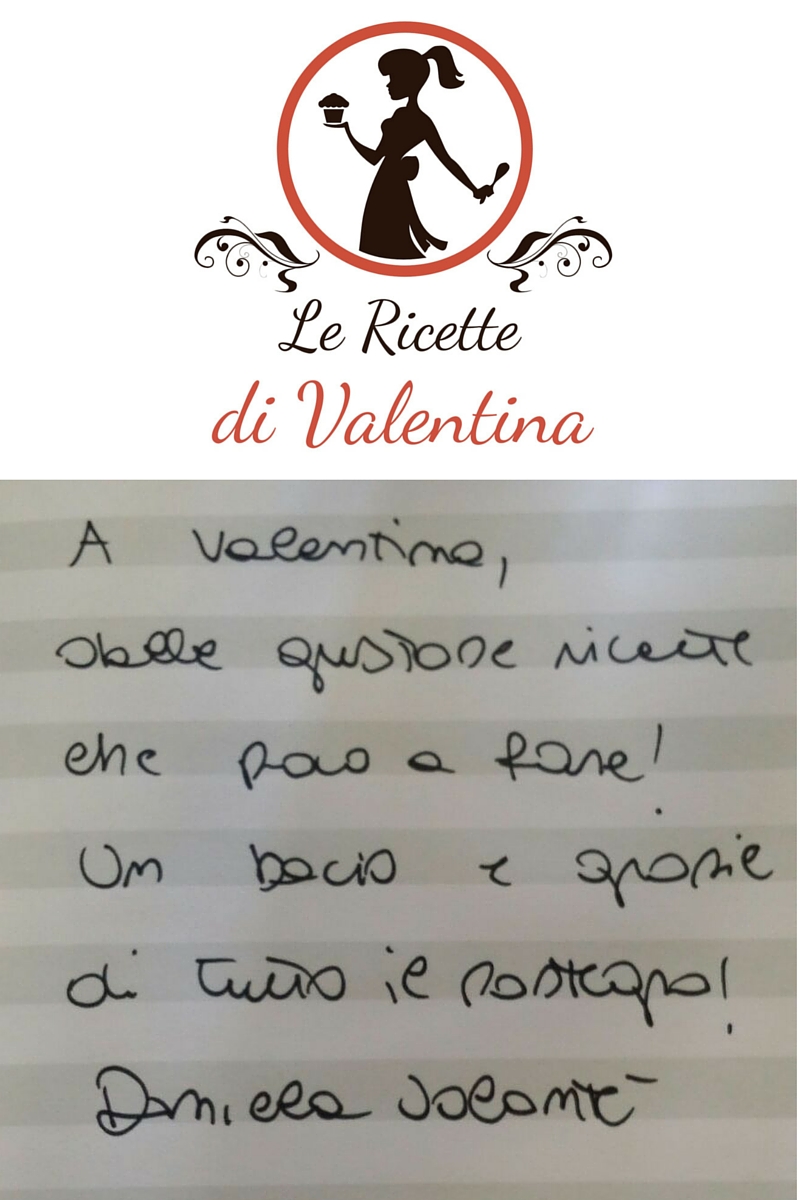 Le Ricette
di Valentina
A Valentina,
dalle gustose ricette
che a fare!
Un bacio e grazie
di tutto il sostegno!
Daniela Volonté